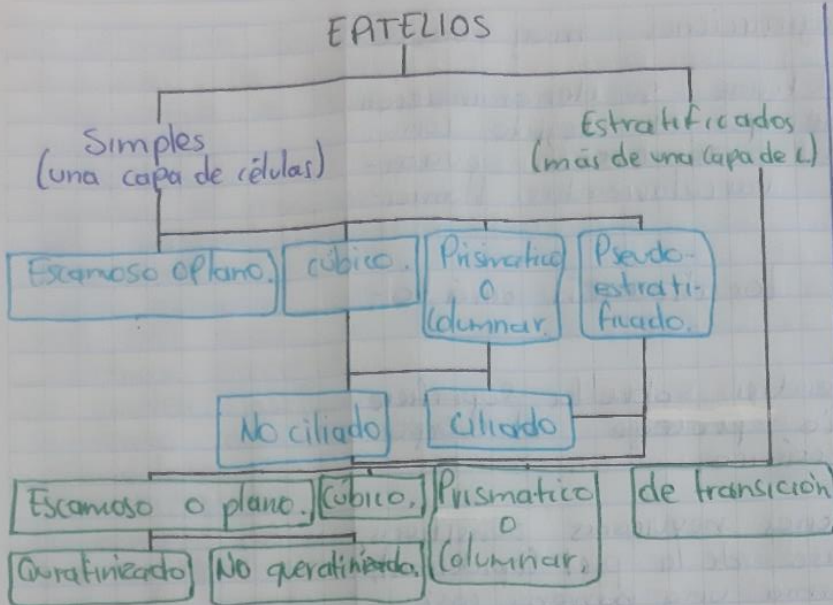 EPITELIOS
Simples
(una capa de células)
Estratificados
(más de una capa de c.)
Escamoso o Plano.
cúbico.
Prismatico
o
Columnar.
Pseudo-
estrati-
ficado.
No ciliado
Ciliado
Escamoso o plano.
Cúbico.
Prismatico
o
Columnar.
de transición
Queratinizado
No queratinizado.